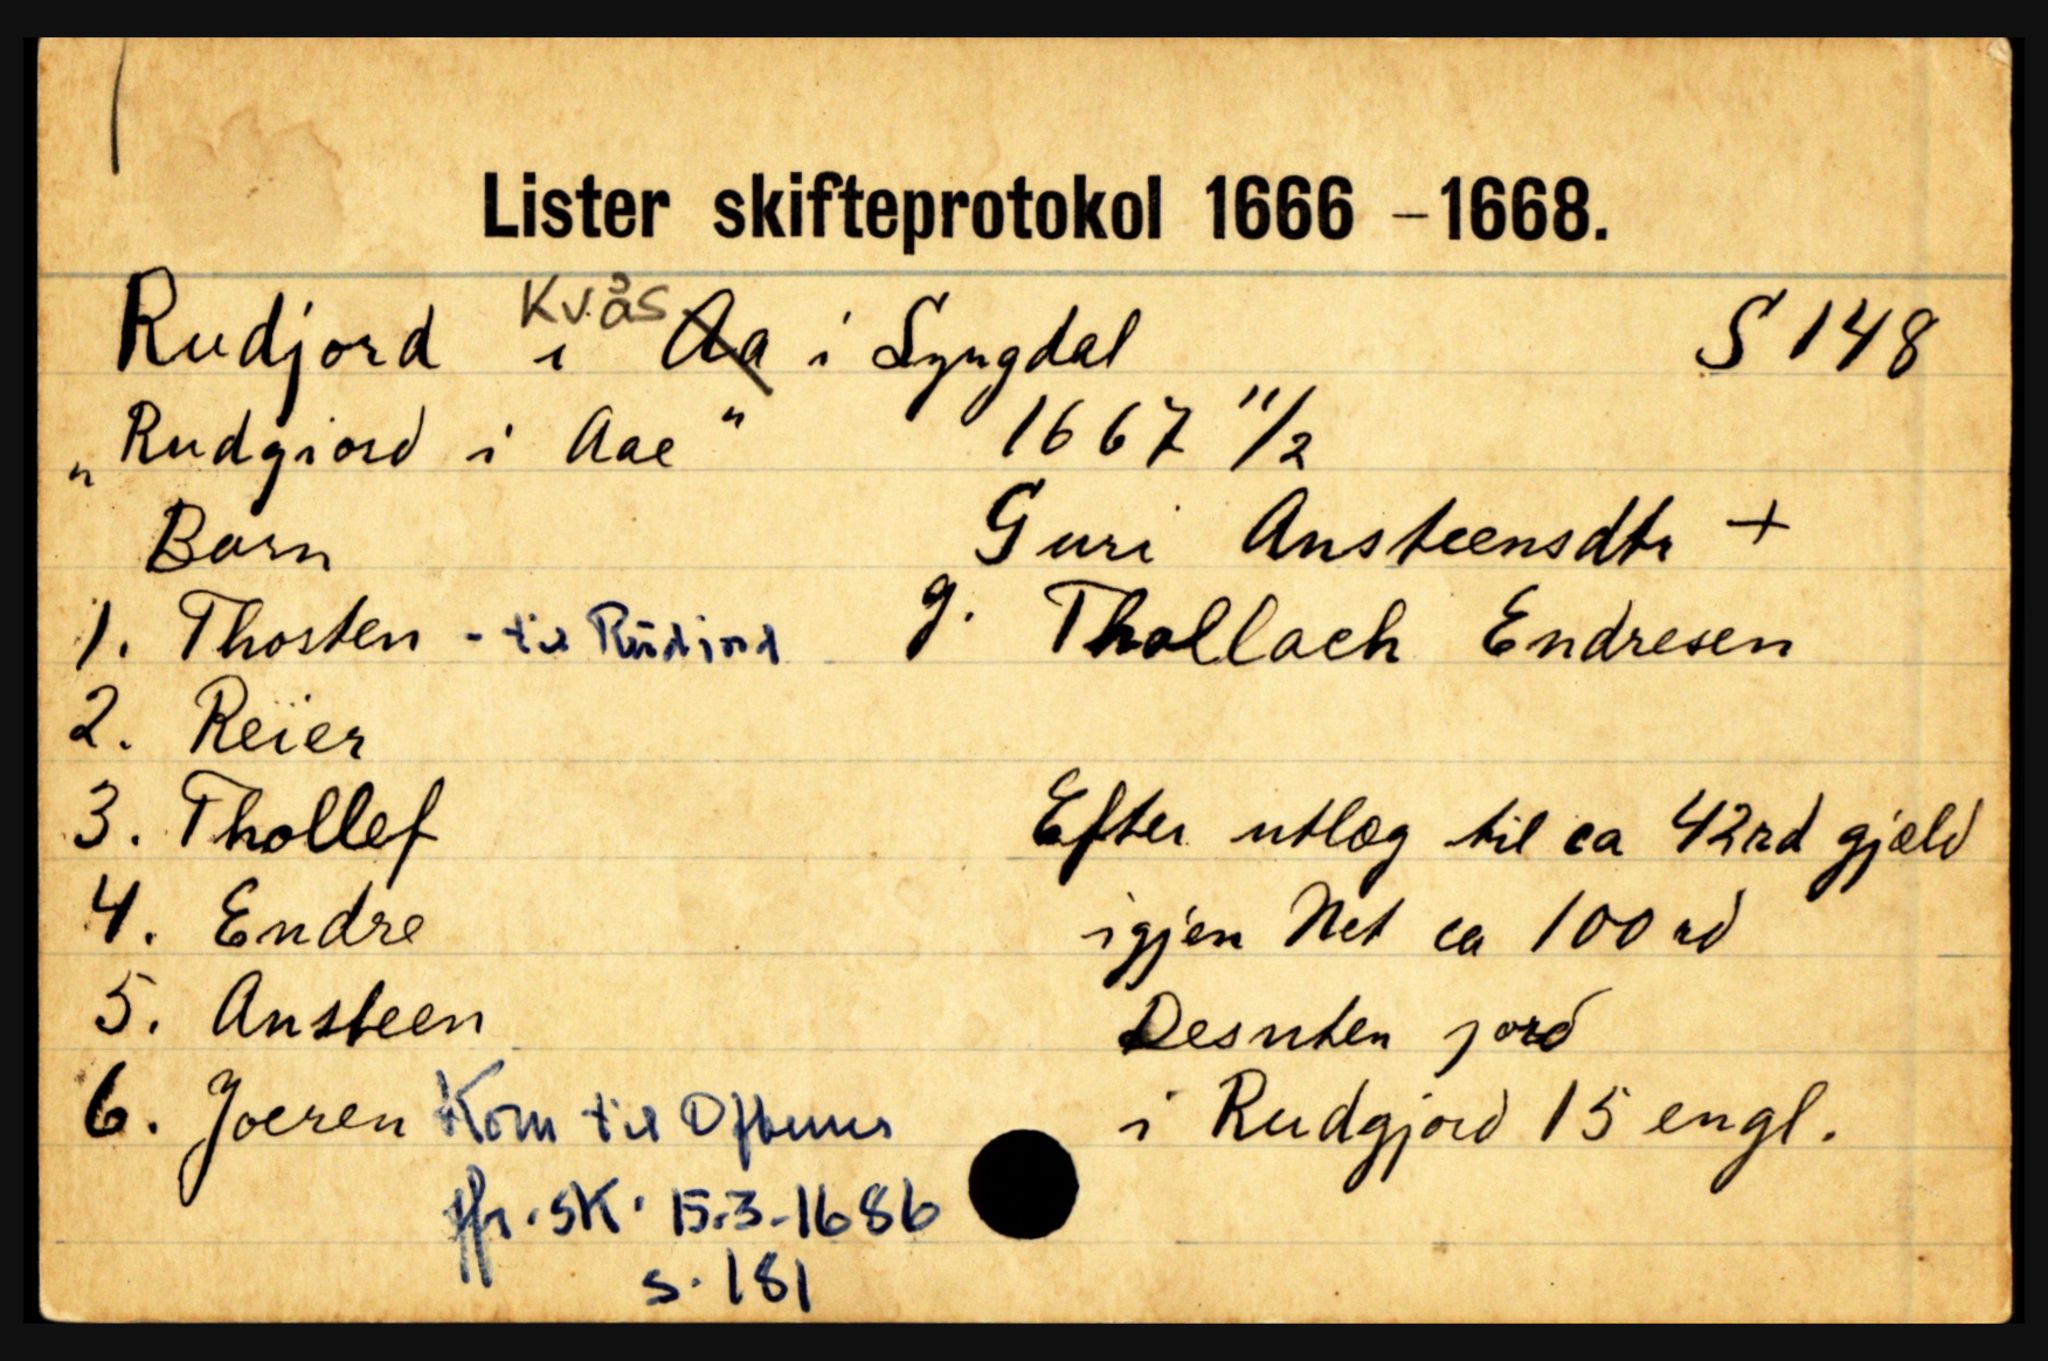 Lister skifteprotokol 1666 – 1668.
Rudjord i Kvås Aa i Lyngdal S 148
„Rudgiord i Aae" 1667 11/2
Barn Guri Ansteensdtr +
1. Thosten - til Rudjord g. Thollach Endresen
2. Reïer
3. Thollef Efter utlæg til ca 42rd gjæld
4. Endre igjen Net ca 100 rd
5. Ansteen Desuten jord
6. Joeren Kom til Oftenes i Rudgjord 15 engl.
jfr. sk. 15.3-1686
s. 181